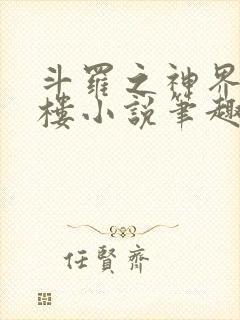 斗羅之神界
樓小說筆趣
任賢齊